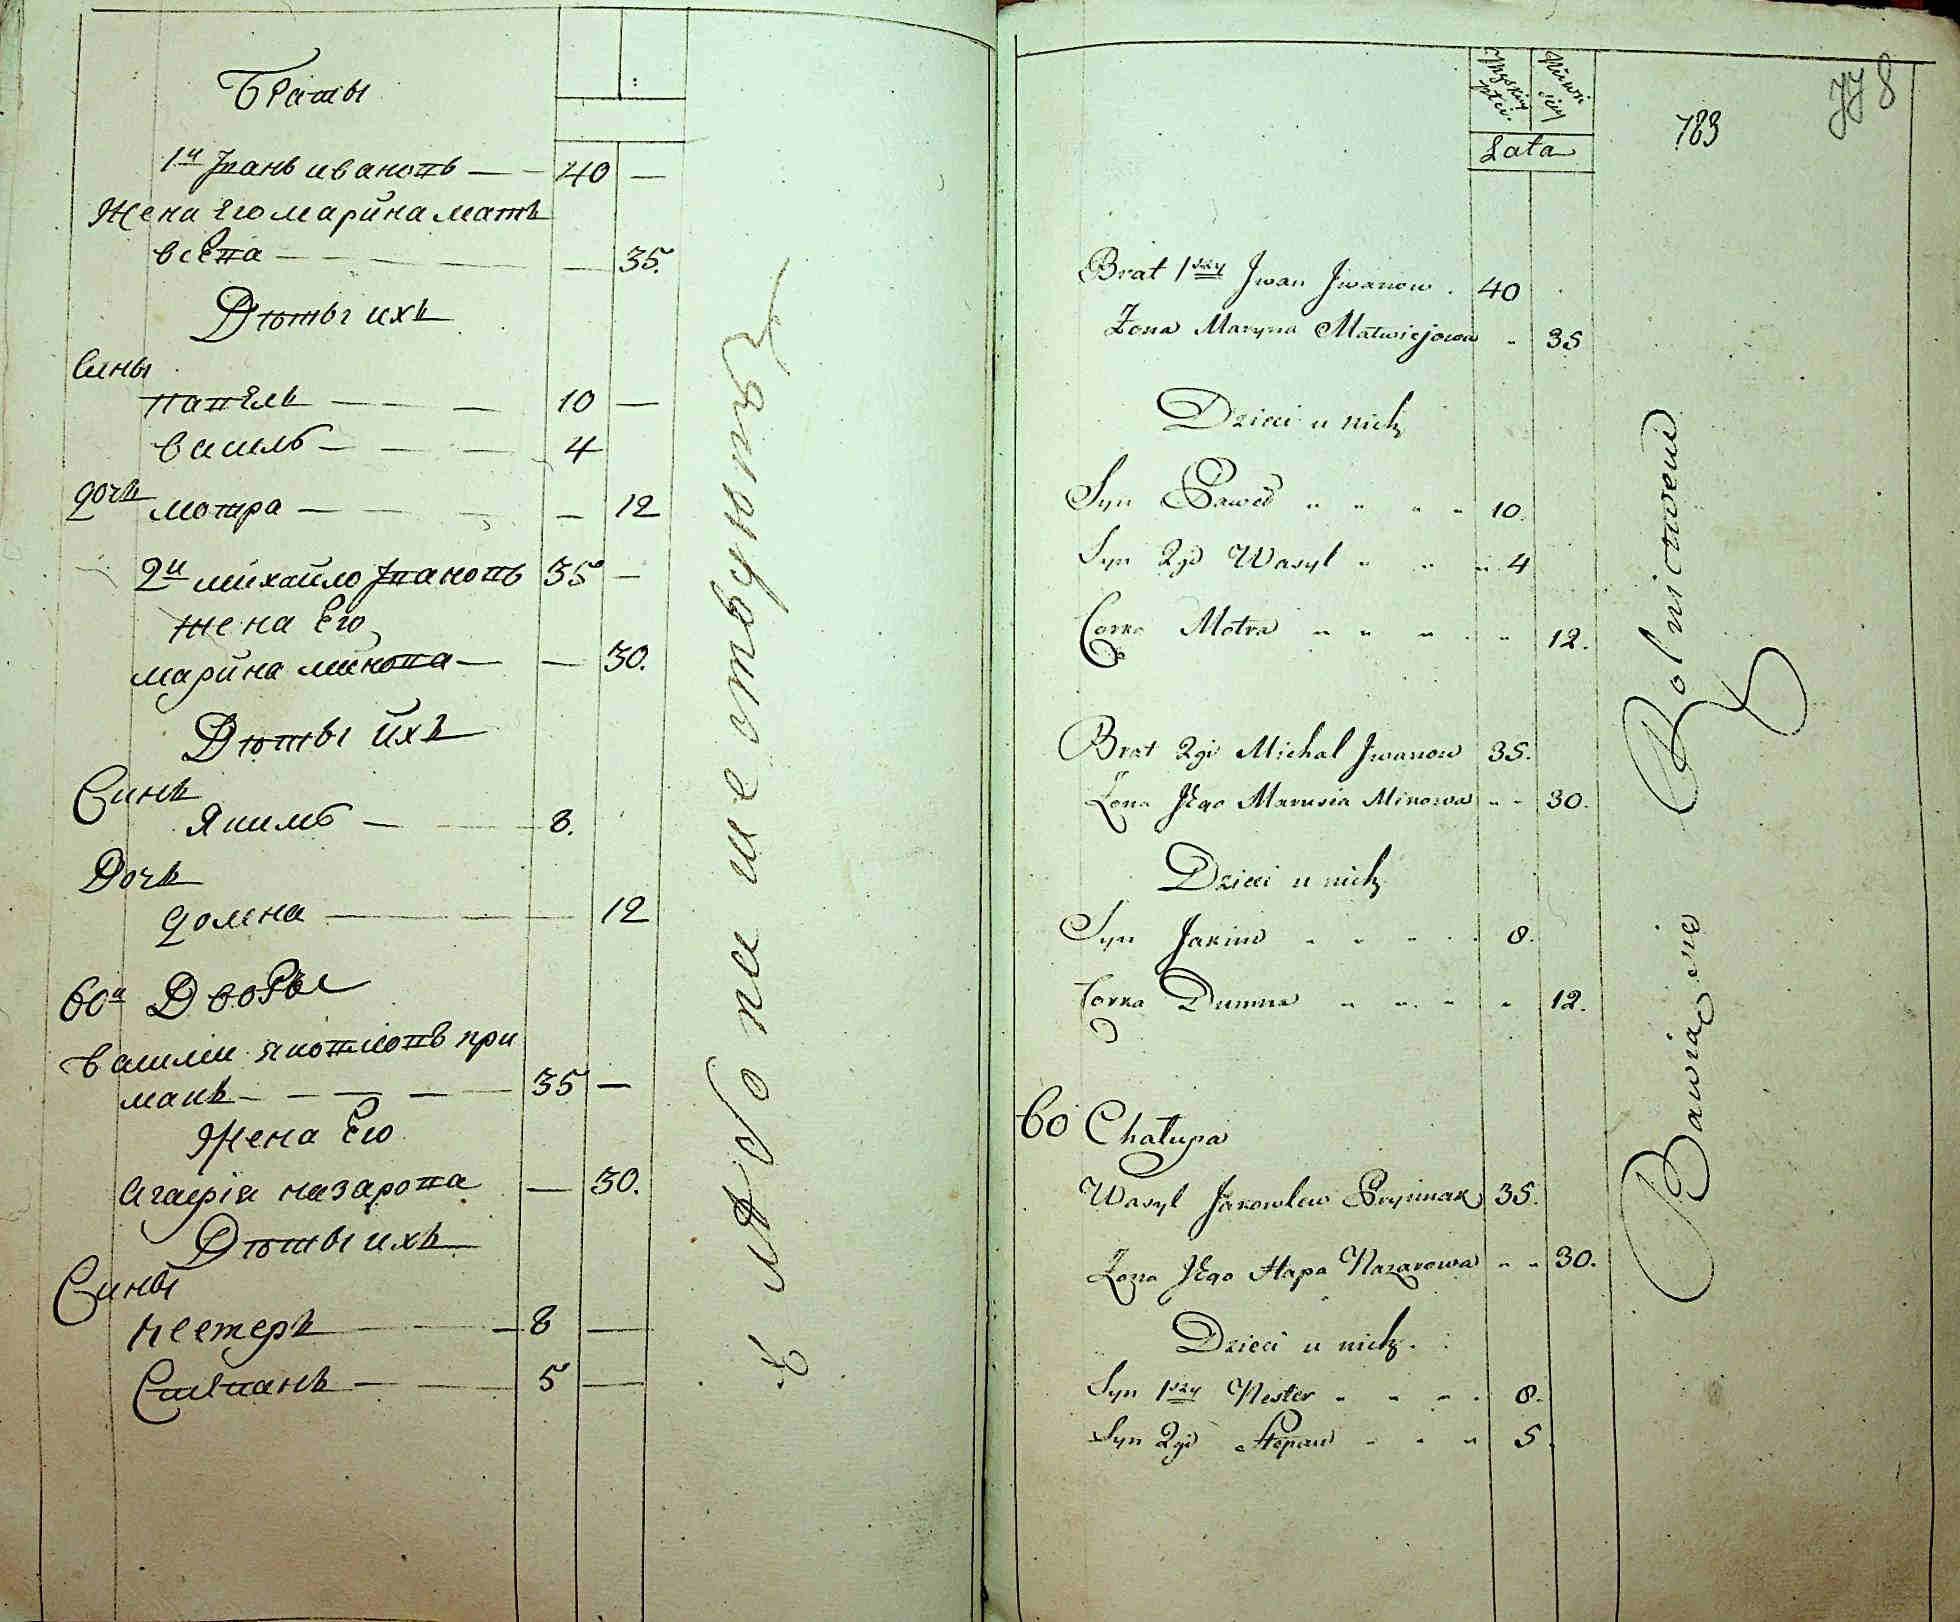 Браты
1й Иванъ ивановъ — 40 —
Жена Его марина матъ
вѣева — — 35.
Дѣты ихъ
Сины
павелъ — 10 —
василь — 4
дочъ мотра — — 12
2й михайло Ивановъ 35 —
жена Его
марина минова — — 30.
Дѣты ихъ
Синъ
Якимъ — 8.
Дочъ
домна — — 12
60й Дворъ
василій яковлювъ при
макъ — 35 —
Жена Его
агафія назарова — 30.
Дѣты ихъ
Сины
нестеръ — 8 —
Степанъ — 5 —
хлѣбопашествуютъ
Męskiey płci
Lata
783
8
Brat 1szy Jwan Jwanow . 40
Żona Maryna Matwiejowa " 35
Dzieci u nich
Syn Paweł " " " " 10.
Syn 2gi Wasyl " " " 4
Corka Motra " " " " 12.
Brat 2gi Michał Jwanow 35.
Żona Jego Marusia Minowa " " 30.
Dzieci u nich
Syn Jakim " " " 8.
Corka Dumna " " " " 12.
60 Chałupa
Wasyl Jakowlew Prymak 35.
Żona Jego Hapa Nazarowa " " 30.
Dzieci u nich.
Syn 1szy Nester " " " 8.
Syn 2gi Stepan " " " 5.
Bawią się Rolnictwem